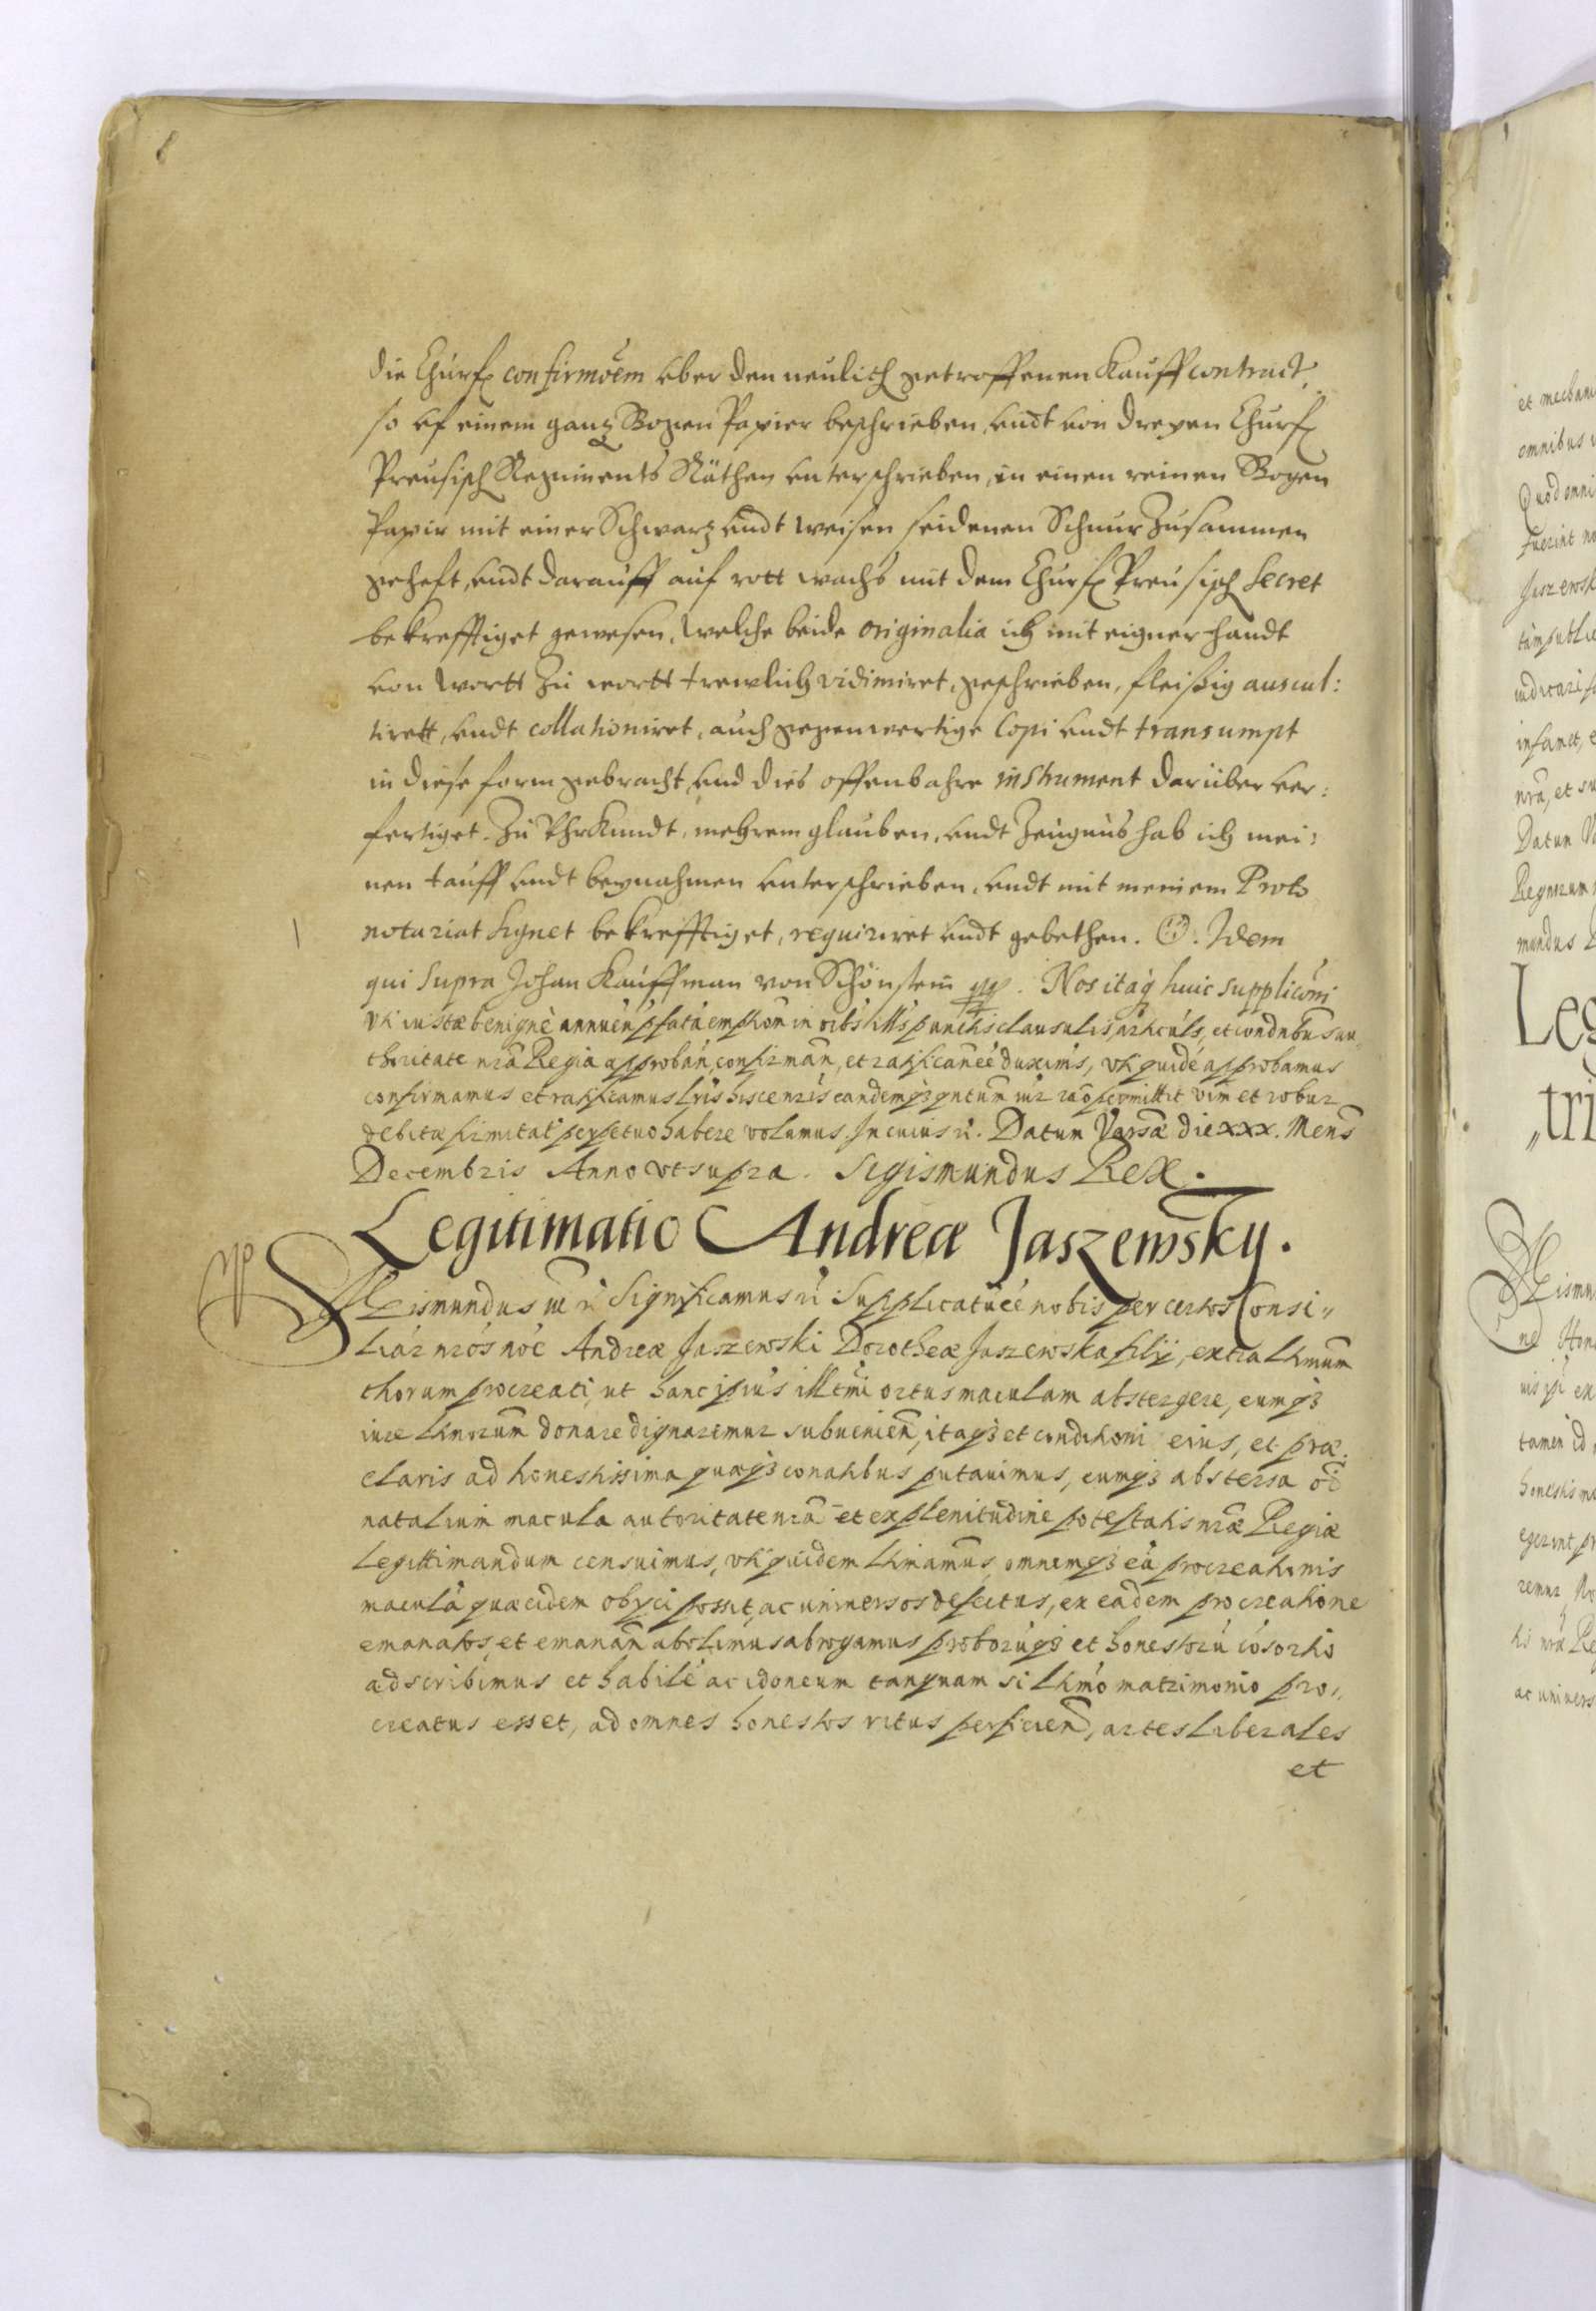 8
die Churf. confirmõem vber den neulich getroffenen Kauffcontract,
so vf einem gantz Bogen Papier beschrieben, vndt von dreyen Churf.
Preusisch Regiments Räthen vnterschrieben, in einen reinen Bogen
Papir mit einer Schwartz vndt weisen seidenen Schnur Zusammen
geheft, vndt darauff auf rott wachs mit dem Churf. Preusisch Secret
bekrefftiget gewesen, Welche beide originalia ich mit eigner handt
von Wortt zu wortt trewlich vidimiret, geschrieben, fleissig auscul:
tirett, vndt collationiret, auch gegenwertige Copi vndt transumpt
in diese form gebracht, vnd dies offenbahre instrument darüber ver:
fertiget. Zu Vhrkundt, mehrem glauben, vndt Zeugnus hab ich mei:
nen tauff vndt beynahmen vnterschrieben, vndt mit meinem Proto
notariat Signet bekrefftiget, requiriret vndt gebethen. Idem
qui supra Johan Kauffman von Schönstein. Nos itaq huic supplicõni
vti iustæ benignè annuen pfatã emptiõnem in oibs illis punctis clausulis, articulis, et condnibus au
thoritate nrã Regia approban, confirman, et ratifican duximus, vti quidé approbamus
confirmamus et ratificamus lris hisce nris eandemq quntum iur rao permittit vim et robur
debitæ firmitat perpetuo habere volumus. In cuius rí. Datum Varsã die xxx. Mens
Decembris Anno vt supra. Sigismundus Rex.
Legitimatio Andreæ Jaszewsky.
Sigismundus III rí Significamus rí Supplicatú eé nobis per certos Consi„
liár nrós noé Andreæ Jaszewski Dorotheæ Jaszewska filij, extra ltimum
thorum procreati, ut hanc ipsius illtmi ortus maculam abstergere, eumq
iure ltimorum donare dignaremur subuenien, itaq et conditioni eius, et præ:
claris ad honestissima quæq conatibus putauimus, eumq abstersa oi
natalium macula autoritate nrã et ex plenitudine potestatis nræ Regiæ
Legittimandum censuimus, vti quidem ltimamus, omnemq eã procreationis
maculã quæ eidem obijci possit, ac universos defectus, ex eadem procreatione
emanatos, et emanan abolimus abrogamus proborúq et honestorú cósortio
adscribimus et habilé ac idoneum tanquam si ltimo matrimonio pro„
creatus esset, ad omnes honestos ritus perficien, artes liberales
et